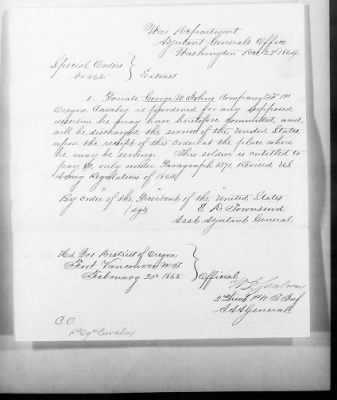 War Department
Adjutant General's Office
Washington Dec 27 1864
Special Orders
No 465
Extract
1. Private George W. Johns Company "F" 1st
Oregon Cavalry is pardoned for any supposed
desertion he may have heretofore committed and
will be discharged the service of the United States
upon the receipt of this order at the place where
he may be serving. This soldier is entitled to
pay &c, only under Paragraph Revised US
Army Regulations of 1863
By order of the President of the United States
(sgd) E. D. Townsend
Asst Adjutant General
Hd Qrs District of Oregon
Fort Vancouver W.T.
February 20th 1865
Official
2d Lieut 1st W.T. Inf
A A A General
C.O.
1st Cavalry